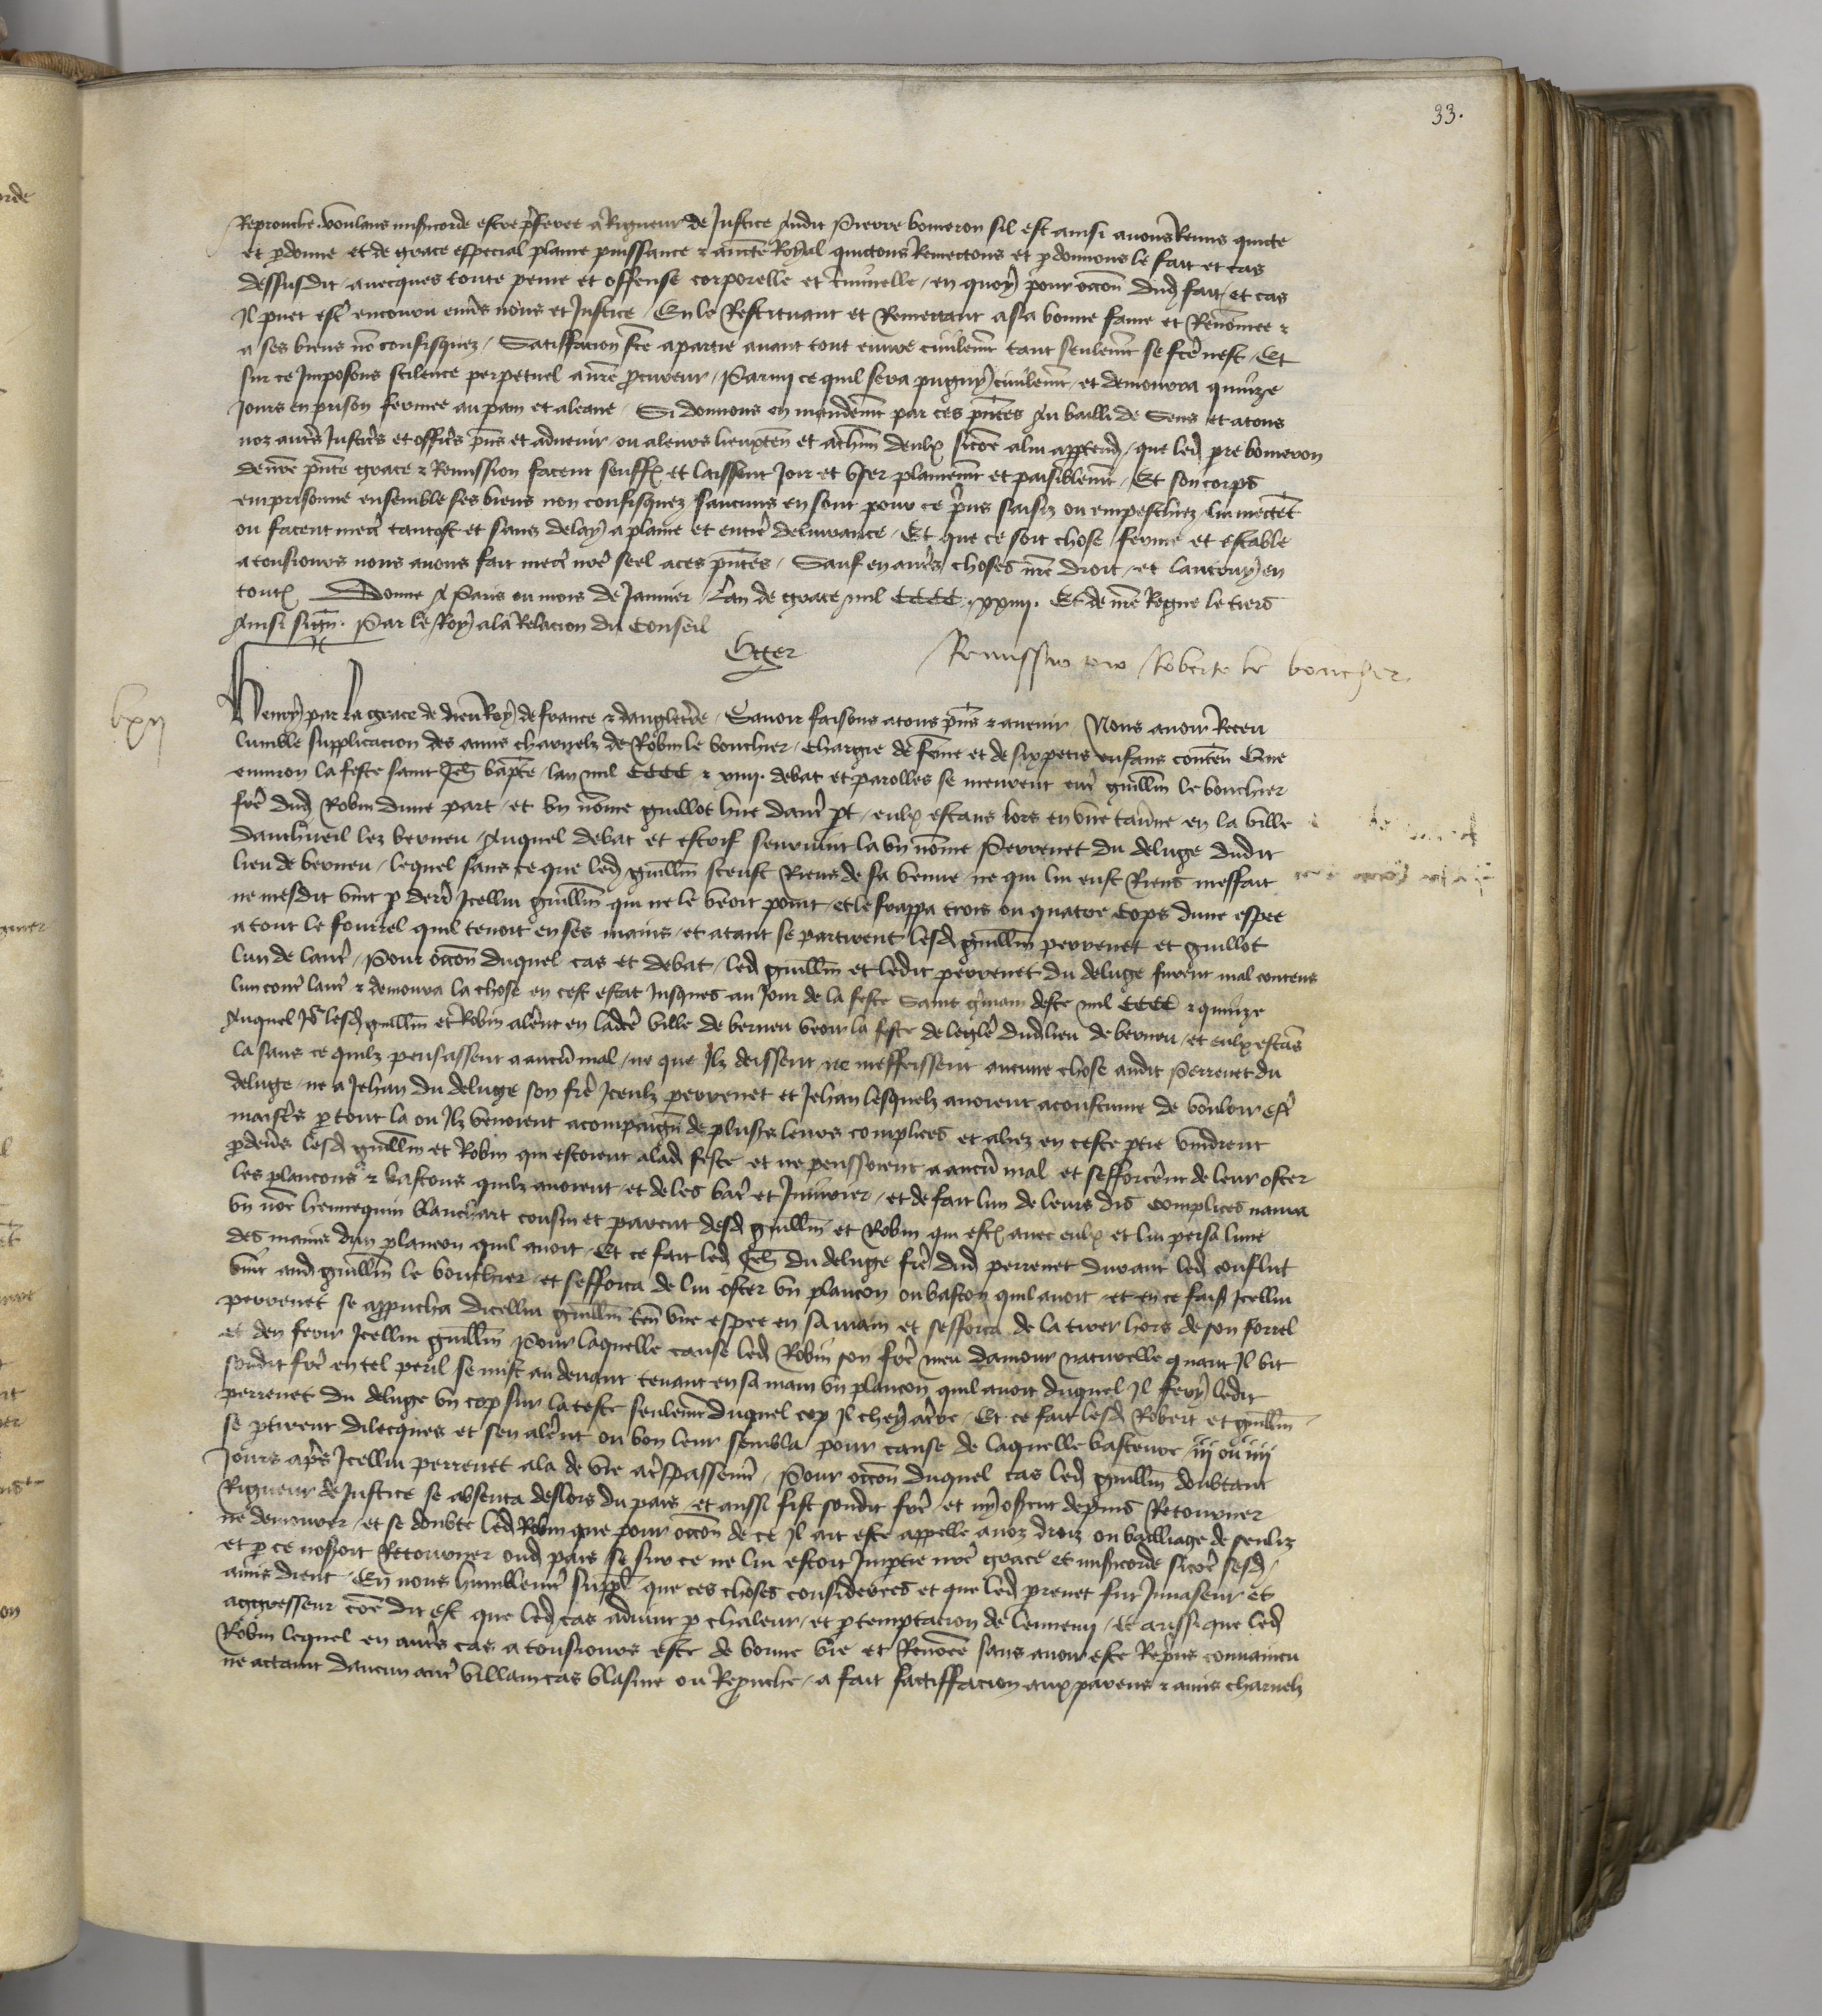 33.
Reprouche. voulans misicorde estre preferee a Rigueur de Justice Audit Pierre bomeron sil est ainsi avons Remis quicte
et pdonne et de grace especial plaine puissance & aucte Royal quictons Remectons et pdonnons le fait et cas
dessusdit avecques toute peine et offense corporelle et criminelle en quoy pour occon dud fait et cas
Il puet estre encouru envers nous et Justice En le Restituant et Remettant a sa bonne fame et Renommee &
a ses biens non confisquez Satisfacion fcte a partie avant tout euvre civilemt tant seulemt se fcte nest Et
sur ce Imposons scilence perpetuel a nre pcureur Parmy ce quil sera pugny civilemt et demourra quinze
Jours en prison fermee au pain et a leaue Si donnons en mandemt par ces pntes Au bailli de Sens et a tous
noz autres Justics et offics pns et advenir ou a leurs lieuxten et a chun deulx sicoe a lui apptendr que led pre bomeron
de nre pnte grace & Remission facent seuffr et laissent Joir et user plainemt et paisiblemt Et son corps
emprisonne ensemble ses biens non confisquez saucuns en sont pour ce prins saisiz ou empeschiez lui mectent
ou facent mectre tantost et sans delay a plaine et entiere delivrance Et que ce soit chose ferme et estable
a tousiours nous avons fait mectre nre seel a ces pntes Sauf en autres choses nre droit et lautruy en
toutes Donne A Paris ou mois de Janvier Lan de grace mil CCCC xxiiij. Et de nre Regne le tiers
Ainsi sign. Par le Roy a la Relacion du Conseil
Ogier
Remissio pro Roberto le boucher.
lxij
Henry par la grace de dieu Roy de france & dangleterre Savoir faisons a tous pns & avenir Nous avoir Receu
lumble supplicacion des amis charnelz de Robin le bouchier Chargie de feme et de six petis enfans conten Que
environ la feste saint Jeh bapte lan mil CCCC & xiiij. debat et parolles se meurent entre guillm le bouchier
frere dud Robin dune part et un nome guillot hue dautre pt eulx estans lors en une taverne en la ville
dauthueil lez berneu Auquel debat et estrif seurvint la un nome Perrenet du deluge dudit
lieu de berneu lequel sans ce que led guillm sceust Riens de sa venue ne qui lui eust Riens meffait
ne mesdit vint p deriere Icellui guillm qui ne le veoit point et le frappa trois ou quatre cops dune espee
a tout le fourrel quil tenoit en ses mains et atant se partirent lesd guillm perrenet et guillot
lun de lautre Pour occon duquel cas et debat led guillm et ledit perrenet du deluge furent mal contens
lun contre lautre & demoura la chose en cest estat Jusques au Jour de la feste Saint gmain deste mil CCCC & quinze
Auquel Jo lesd guillm et Robin alerent en ladte ville de berneu veoir la feste de leglise dud lieu de berneu et eulx estans
la sans ce quilz pensassent a aucun mal ne que Ilz deissent ne meffeissent aucune chose audit Perrenet du
deluge ne a Jehan du deluge son frere Iceulx perrenet et Jehan lesquelz avoient acoustume de vouloir estre
maistres ptout la ou Ilz venoient acompaign de plusrs leurs complices et aliez en ceste ptie vindrent
pdevers lesd guillm et Robin qui estoient a lad feste et ne penssoient a aucun mal et sefforcerent de leur oster
les plancons & bastons quilz avoient et de les batre et Iniurier et de fait lun de leurs dis complices navra
un nome hennequin blanchart cousin et parent desd guillm et Robin qui estoit avec eulx et lui persa lune
des mains dun plancon quil avoit Et ce fait led Jeh du deluge frere dud perrenet durant led conflict
vint aud guillm le bouchier et sefforca de lui oster un plancon ou baston quil avoit et en ce fais Icellui
perrenet se appucha dicellui guillm ten une espee en sa main et sefforca de la tirer hors de son forrel
et den ferir Icellui guillm Pour laquelle cause led Robin son frere meu damour naturelle quant Il vit
sondit frere en tel peril se mist au devant tenant en sa main un plancon quil avoit duquel Il fery ledit
perrenet du deluge un cop sur la teste seulemt duquel cop Il chey a terre Et ce fait lesd Robert et guillm
se ptirent dilecques et sen alerent ou bon leur sembla pour cause de laquelle basteure iij ou iiij
Jours apres Icellui perrenet ala de vie a trespassemt Pour occon duquel cas led guillm doubtant
Rigueur de Justice se absenta deslors du pais et aussi fist sondit frere et ny osent depuis Retourner
ne demourer et se doubte led Robin que pour occon de ce Il ait este appelle a noz droiz ou bailliage de senliz
et p ce nosoit Retourner oud pais se sur ce ne lui estoit Imptie nre grace et misicorde sicoe sesd
amis dient En nous humblemt suppl que ces choses considerees et que led prenet fut Invaseur et
aggresseur coe dit est que led cas advint p chaleur et p temptacion de lennemy Et aussi que led
Robin lequel en autres cas a tousiours este de bonne vie et Renomee sans avoir este Reprins convaincu
ne actaint daucun autre villain cas blasme ou Reprouche a fait sattiffacion aux parens & amis charnelz